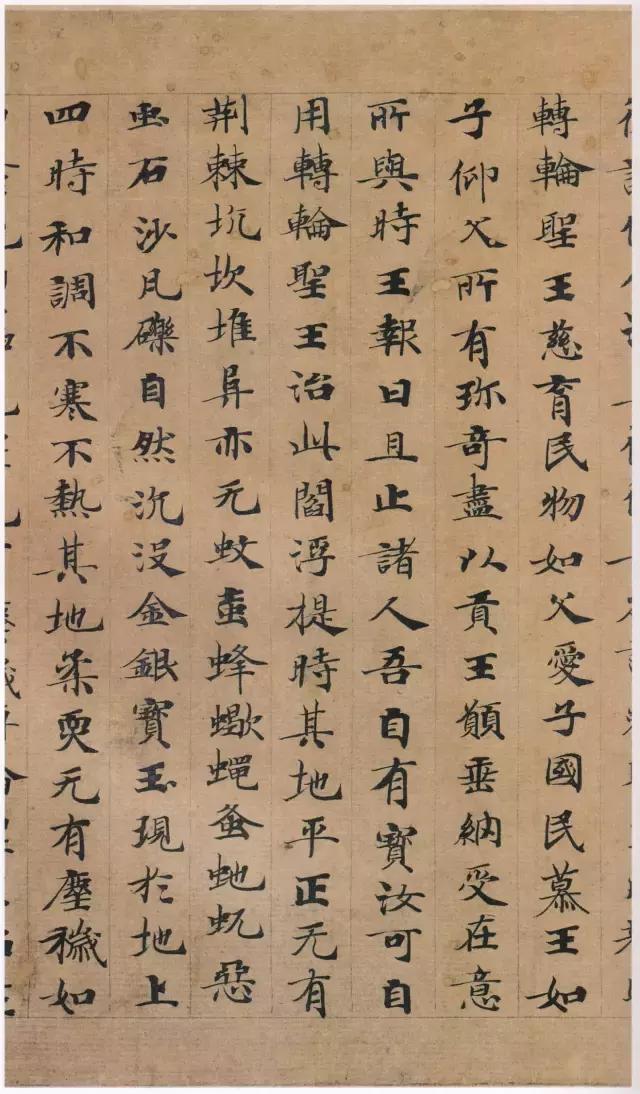 轉輪聖王慈育民物如父愛子國民慕王如
子仰父所有珎奇盡以貢王願垂納受在意
所與時王報曰且止諸人吾自有寶汝可自
用轉輪聖王治此閻浮提時其地平正无有
荆棘坑坎堆阜亦无蚊虻蜂蠍蠅蚤虵蚖惡
虫石沙凡礫自然沉没金銀寶玉現於地上
四時和調不寒不熱其地柔耎无有塵穢如